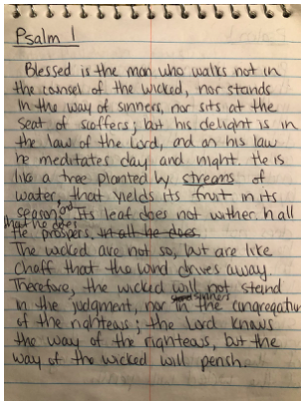 Psalm 1
Blessed is the man who walks not in
the counsel of the wicked, nor stands
in the way of sinners, nor sits at the
seat of scoffers; but his delight is in
the law of the Lord, and on his law
he meditates day and night. He is
like a tree planted by streams of
water, that yields its fruit in its
season, and Its leaf does not wither. In all
that he does
he prospers. in all he does.
The wicked are not so, but are like
chaff that the wind drives away.
Therefore, the wicked will not stand
in the judgment, nor sinners in the congregation
of the righteous; the Lord knows
the way of the righteous, but the
way of the wicked will perish.